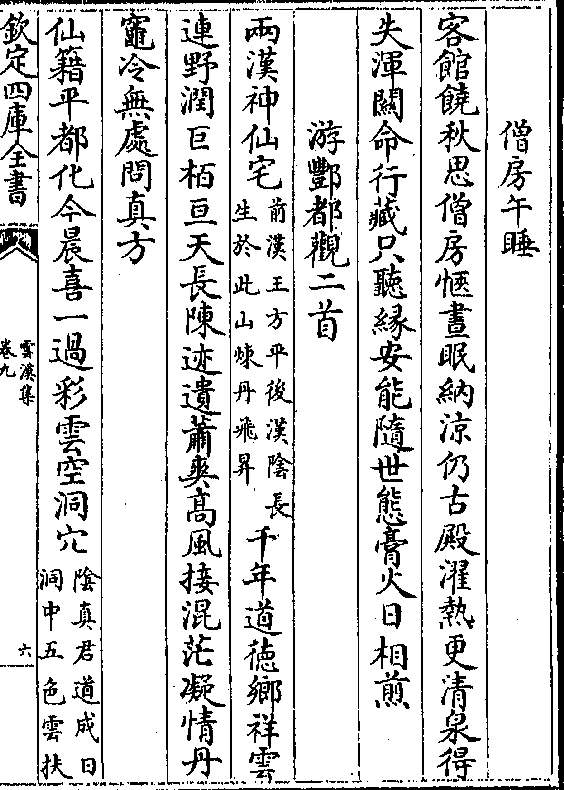 僧房午睡
客館饒秋思僧房愜晝眠納涼仍古殿濯熱更清泉得
失渾闗命行藏只聽緣安能隨世態膏火日相煎
游酆都觀二首
兩漢神仙宅前漢王方平後漢陰長生於此山煉丹飛昇千年道德鄉祥雲
連野潤巨栢亘天長陳迹遺蕭爽髙風接混茫凝情丹
竈冷無處問真方
仙籍平都化今晨喜一過彩雲空洞穴陰真君道成日洞中五色雲扶
欽定四庫全書
雲溪集
卷九
六